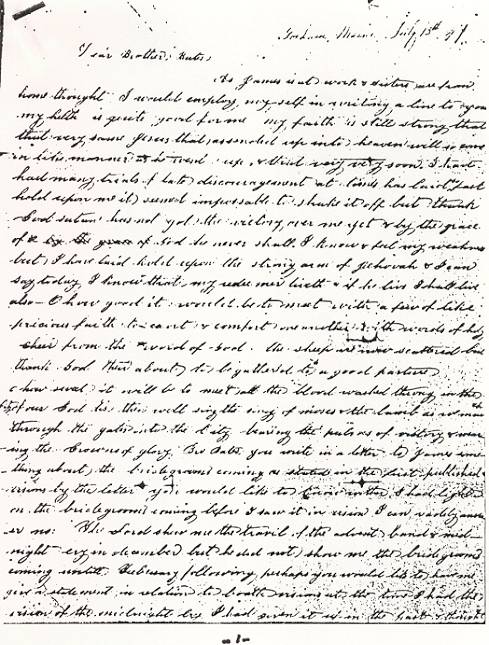 Gorham, Maine, July 13th 47.
Dear Brother Bates
As James is at work & sisters are from
home thought I would employ my self in writing a line to you
my helth is quite good for me my faith is still strong that
that very same Jesus that assended up into heaven will so come
in like manner as he went up & that very very soon. I have
had many trials of late discouragement at times has laid fast
hold upon me it seemed impossable to shake it off. but thank
God satan has not got the victory over me yet & by the grace
of God he never shall. I know & feel my weakness
but I have laid hold upon the strong arm of Jehovah & I can
say today, I know that my redeemer liveth & if he livs I shall live
also O how good it would be to meet with a few of like
precious faith to exort & comfort one another with words of holy
cheer from the word of God. the sheep are now scattered but
thank God thier about to be gathered to a good pasture
O how sweet it will be to meet all the blood washed throng in the
city of our God tis then well sing the song of moses & the lamb as we march
through the gates into the City bearing the palms of victory & wear
ing the Crowns of glory. Bro Bates you write in a letter to James some
thing about the bridegrooms coming as stated in the first published
visions by the letter you would like to know wether I had light
on the bridegrooms coming before I saw it in vision I can readily answer
no: The Lord show me the travil of the advent band & mid-
night cry in december but he did not show me the bridegrooms
coming untill February following, perhaps you would like to have me
give a statement in relation to both visions at the time I had the
vision of the midnight cry I had given it up in the past & thought
- 1 -